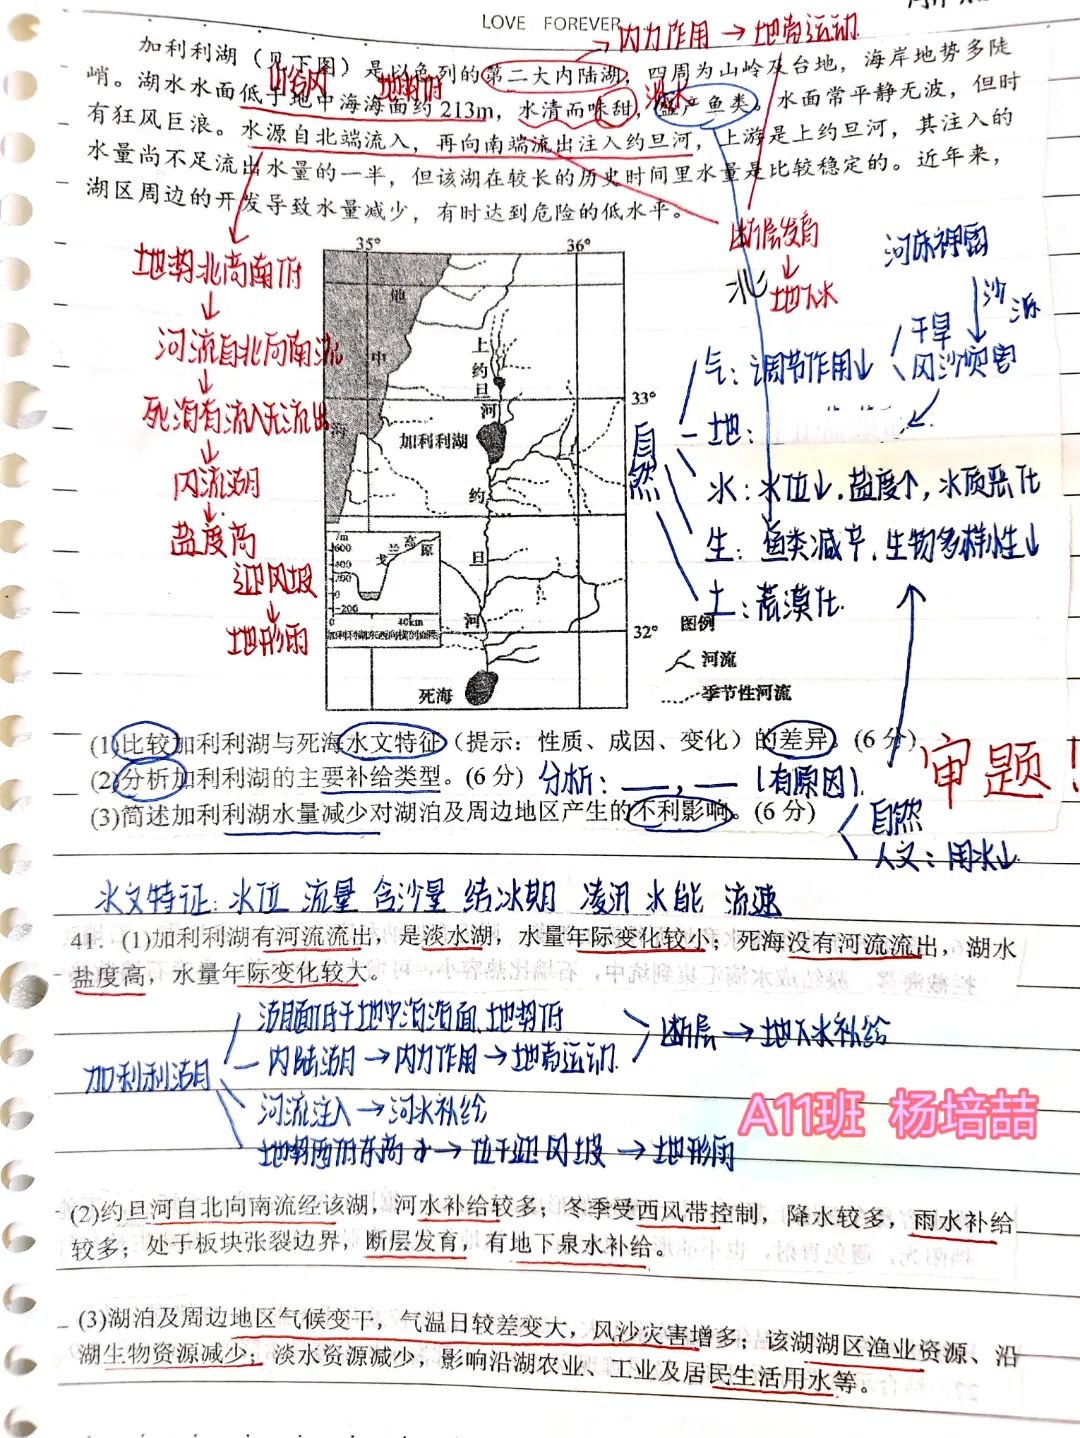 LOVE FOREVER
内力作用 → 地壳运动
加利利湖（见下图）是以色列的第二大内陆湖，四周为山岭及台地，海岸地势多陡
山谷风 地势低 淡水
峭。湖水水面低于地中海海面约213m，水清而味甜，盛产鱼类。水面常平静无波，但时
有狂风巨浪。水源自北端流入，再向南端流出注入约旦河，上游是上约旦河，其注入的
水量尚不足流出水量的一半，但该湖在较长的历史时间里水量是比较稳定的。近年来，
湖区周边的开发导致水量减少，有时达到危险的低水平。
断层发育
↓
地下水
北
地势北高南低
↓
河流自北向南流
↓
死海有流入无流出
↓
内流湖
↓
盐度高
迎风坡
↓
地形雨
35° 36°
地
中
海
上
约
旦
河
33°
加利利湖
约
旦
河
32°
死海
/m
600
400
200
0
-200
戈兰高原
0 40km
加利利湖东西向横剖面图
图例
河流
季节性河流
沙源
干旱
风沙灾害
自然
气：调节作用↓
地：
水：水位↓，盐度↑，水质恶化
生：鱼类减产，生物多样性↓
土：荒漠化
(1)比较加利利湖与死海水文特征（提示：性质、成因、变化）的差异。(6分)
(2)分析加利利湖的主要补给类型。(6分) 分析：＿，＿（有原因）.
审题！
(3)简述加利利湖水量减少对湖泊及周边地区产生的不利影响。(6分)
自然
人文：用水↓
水文特征：水位 流量 含沙量 结冰期 凌汛 水能 流速
41. (1)加利利湖有河流流出，是淡水湖，水量年际变化较小；死海没有河流流出，湖水
盐度高，水量年际变化较大。
加利利湖
湖面低于地中海海面、地势低
内陆湖 → 内力作用 → 地壳运动.
断层 → 地下水补给
河流注入 → 河水补给
地势西低东高 → 位于迎风坡 → 地形雨
A11班 杨培喆
(2)约旦河自北向南流经该湖，河水补给较多；冬季受西风带控制，降水较多，雨水补给
较多；处于板块张裂边界，断层发育，有地下泉水补给。
(3)湖泊及周边地区气候变干，气温日较差变大，风沙灾害增多；该湖湖区渔业资源、沿
湖生物资源减少；淡水资源减少，影响沿湖农业、工业及居民生活用水等。